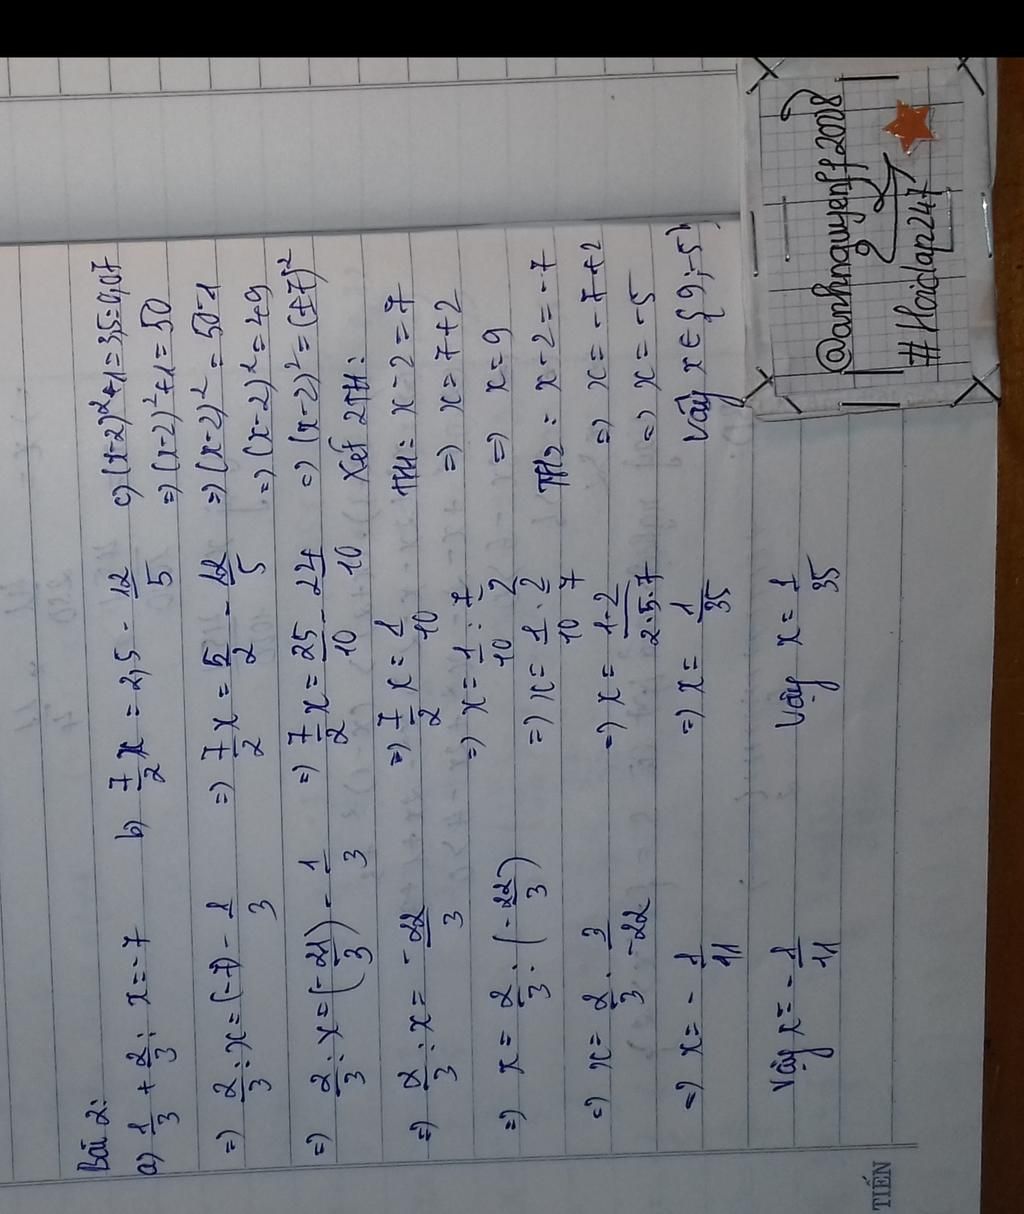 Bài 2:
a) 1/3 + 2/3 : x = -7
=> 2/3 : x = (-7) - 1/3
=> 2/3 : x = (-21/3) - 1/3
=> 2/3 : x = -22/3
=> x = 2/3 : (-22/3)
=> x = 2/3 . 3/-22
=> x = -1/11
Vậy x = -1/11
b) 7/2 x = 2,5 - 12/5
=> 7/2 x = 5/2 - 12/5
=> 7/2 x = 25/10 - 24/10
=> 7/2 x = 1/10
=> x = 1/10 : 7/2
=> x = 1/10 . 2/7
=> x = 1.2/2.5.7
=> x = 1/35
Vậy x = 1/35
c) (x-2)²+1=35:0,07
=> (x-2)²+1=50
=> (x-2)² = 50-1
=> (x-2)² = 49
=> (x-2)² = (±7)²
Xét 2TH:
TH1: x-2=7
=> x=7+2
=> x=9
TH2: x-2=-7
=> x=-7+2
=> x=-5
Vậy x ∈ {9;-5}
@anhnguyenff2008
#Hoidap247
TIẾN